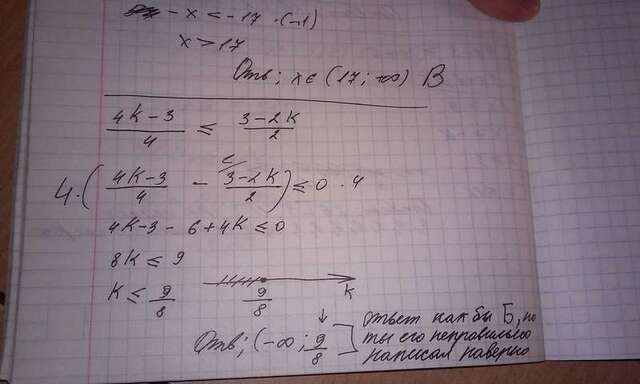 - x < - 17 · (-1)
x > 17
Отв; x ∈ (17; +∞) В
4K - 3 / 4 ≤ 3 - 2K / 2
4 · ( 4K-3 / 4 - 3-2K / 2 ) ≤ 0 · 4
4K - 3 - 6 + 4K ≤ 0
8K ≤ 9
K ≤ 9/8
9/8 K
Отв; (-∞; 9/8]
ответ как бы Б, но
ты его неправильно
написал наверно